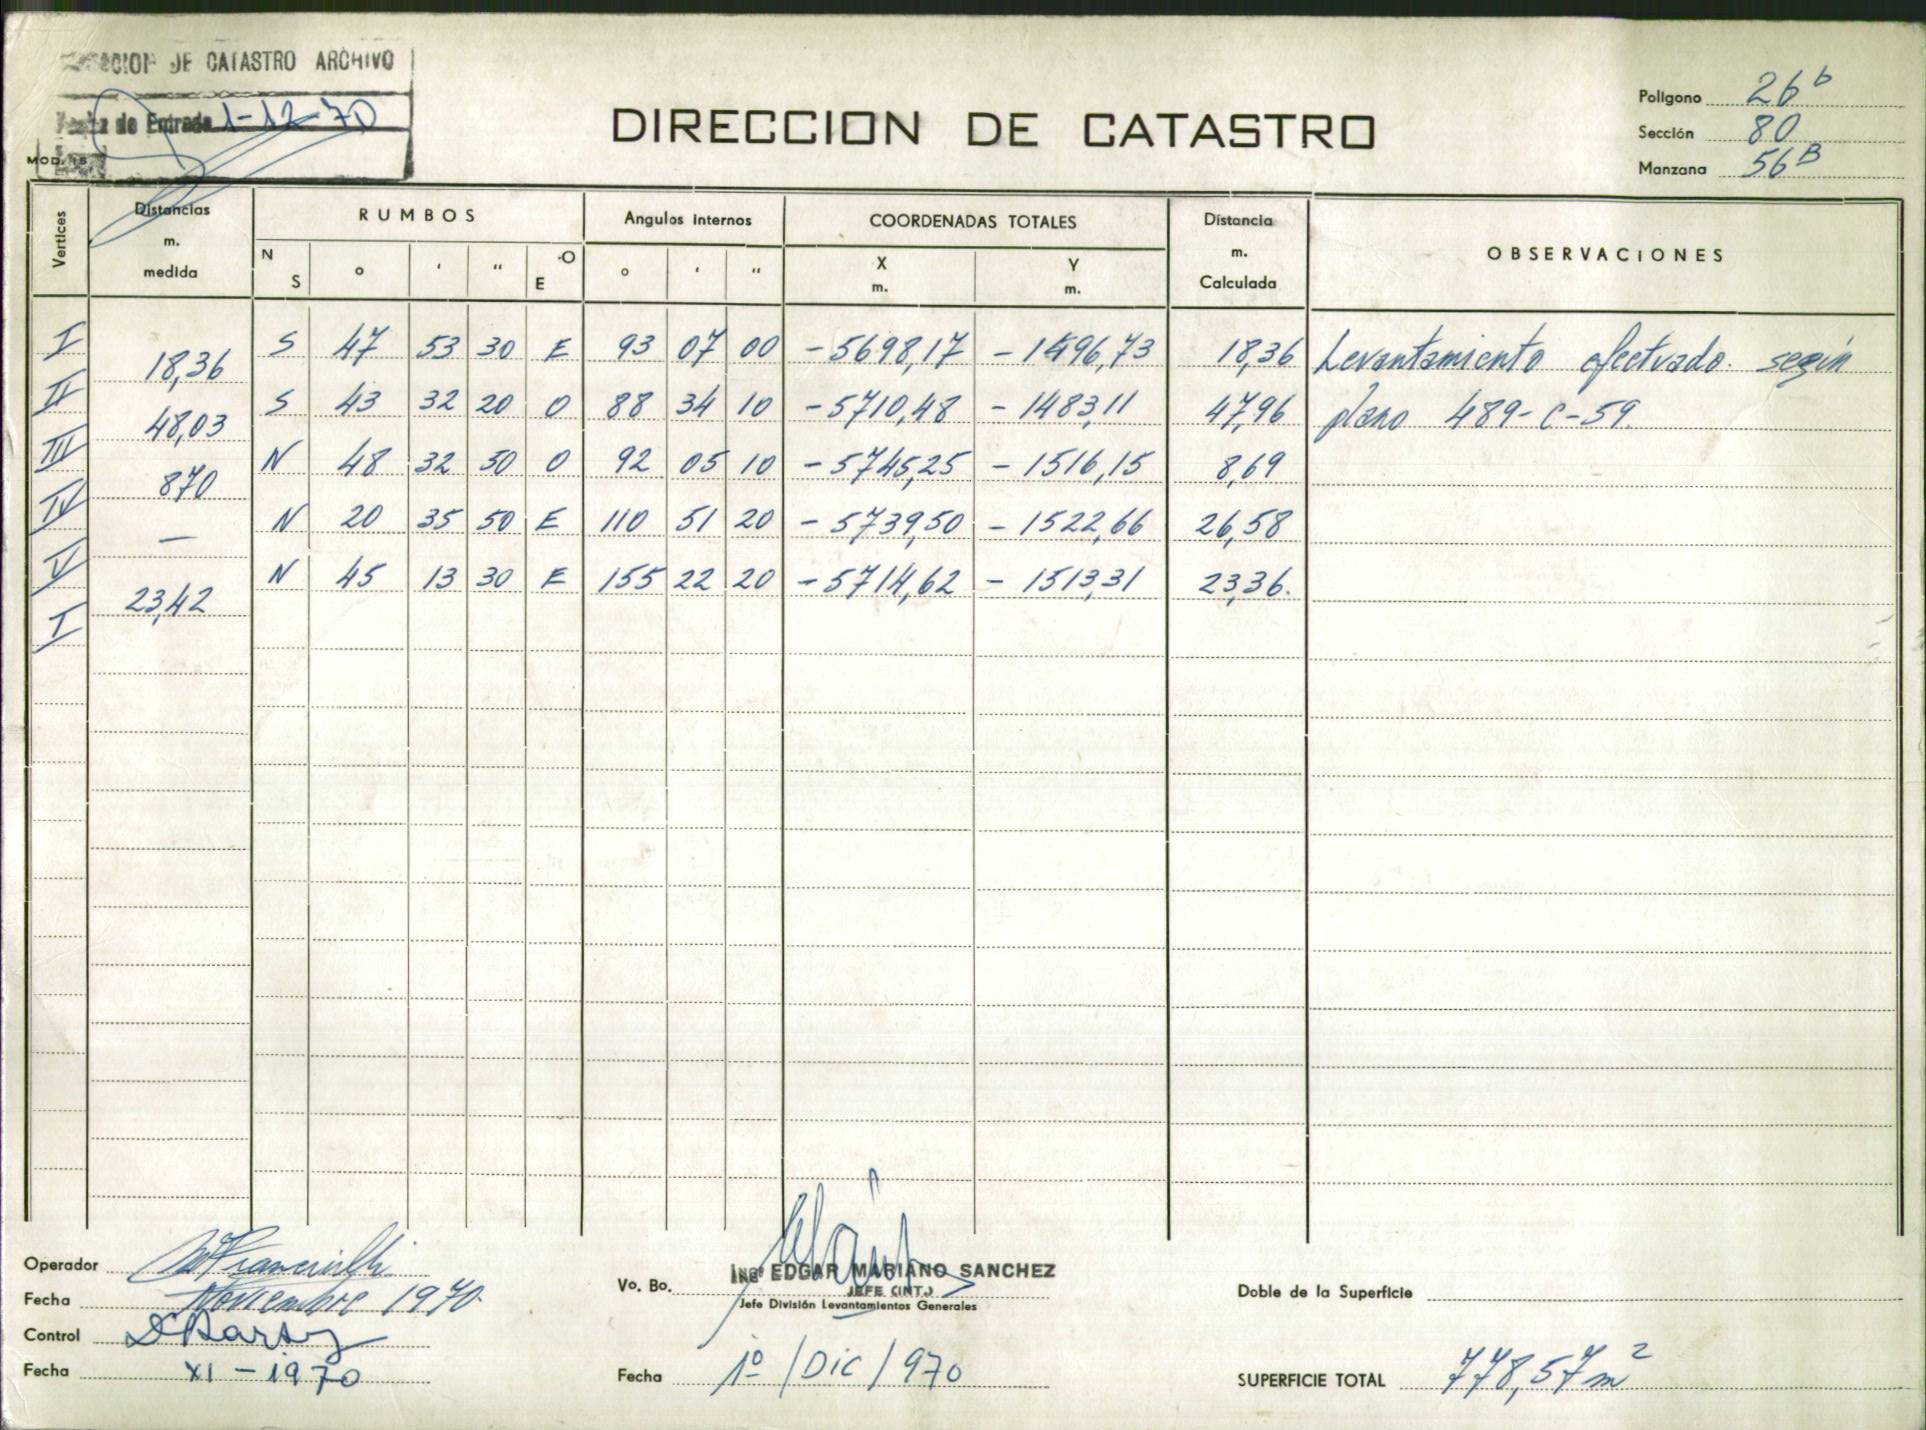 DE CATASTRO ARCHIVO
de Entrada 1-12-70
MOD. 15
DIRECCION DE CATASTRO
Poligono 26b
Sección 80
Manzana 56B
Vertices
Distancias m. medida
RUMBOS
N S ° ' " O E
Angulos internos
° ' "
COORDENADAS TOTALES
X m. Y m.
Distancia m. Calculada
OBSERVACIONES
I S 47 53 30 E 93 07 00 -5698,17 -1496,73 18,36 Levantamiento efectuado. según
18,36
II S 43 32 20 O 88 34 10 -5710,48 -1483,11 47,96 plano 489-C-59.
48,03
III N 48 32 50 O 92 05 10 -5745,25 -1516,15 8,69
870
IV N 20 35 50 E 110 51 20 -5739,50 -1522,66 26,58
—
V N 45 13 30 E 155 22 20 -5714,62 -1513,31 23,36.
23,42
I
Operador
Fecha Noviembre 1970.
Control
Fecha XI-1970
Vo. Bo. Ingº EDGAR MARIANO SANCHEZ
JEFE (INT.)
Jefe División Levantamientos Generales
Fecha 1º/Dic/970
Doble de la Superficie
SUPERFICIE TOTAL 778,57 m²